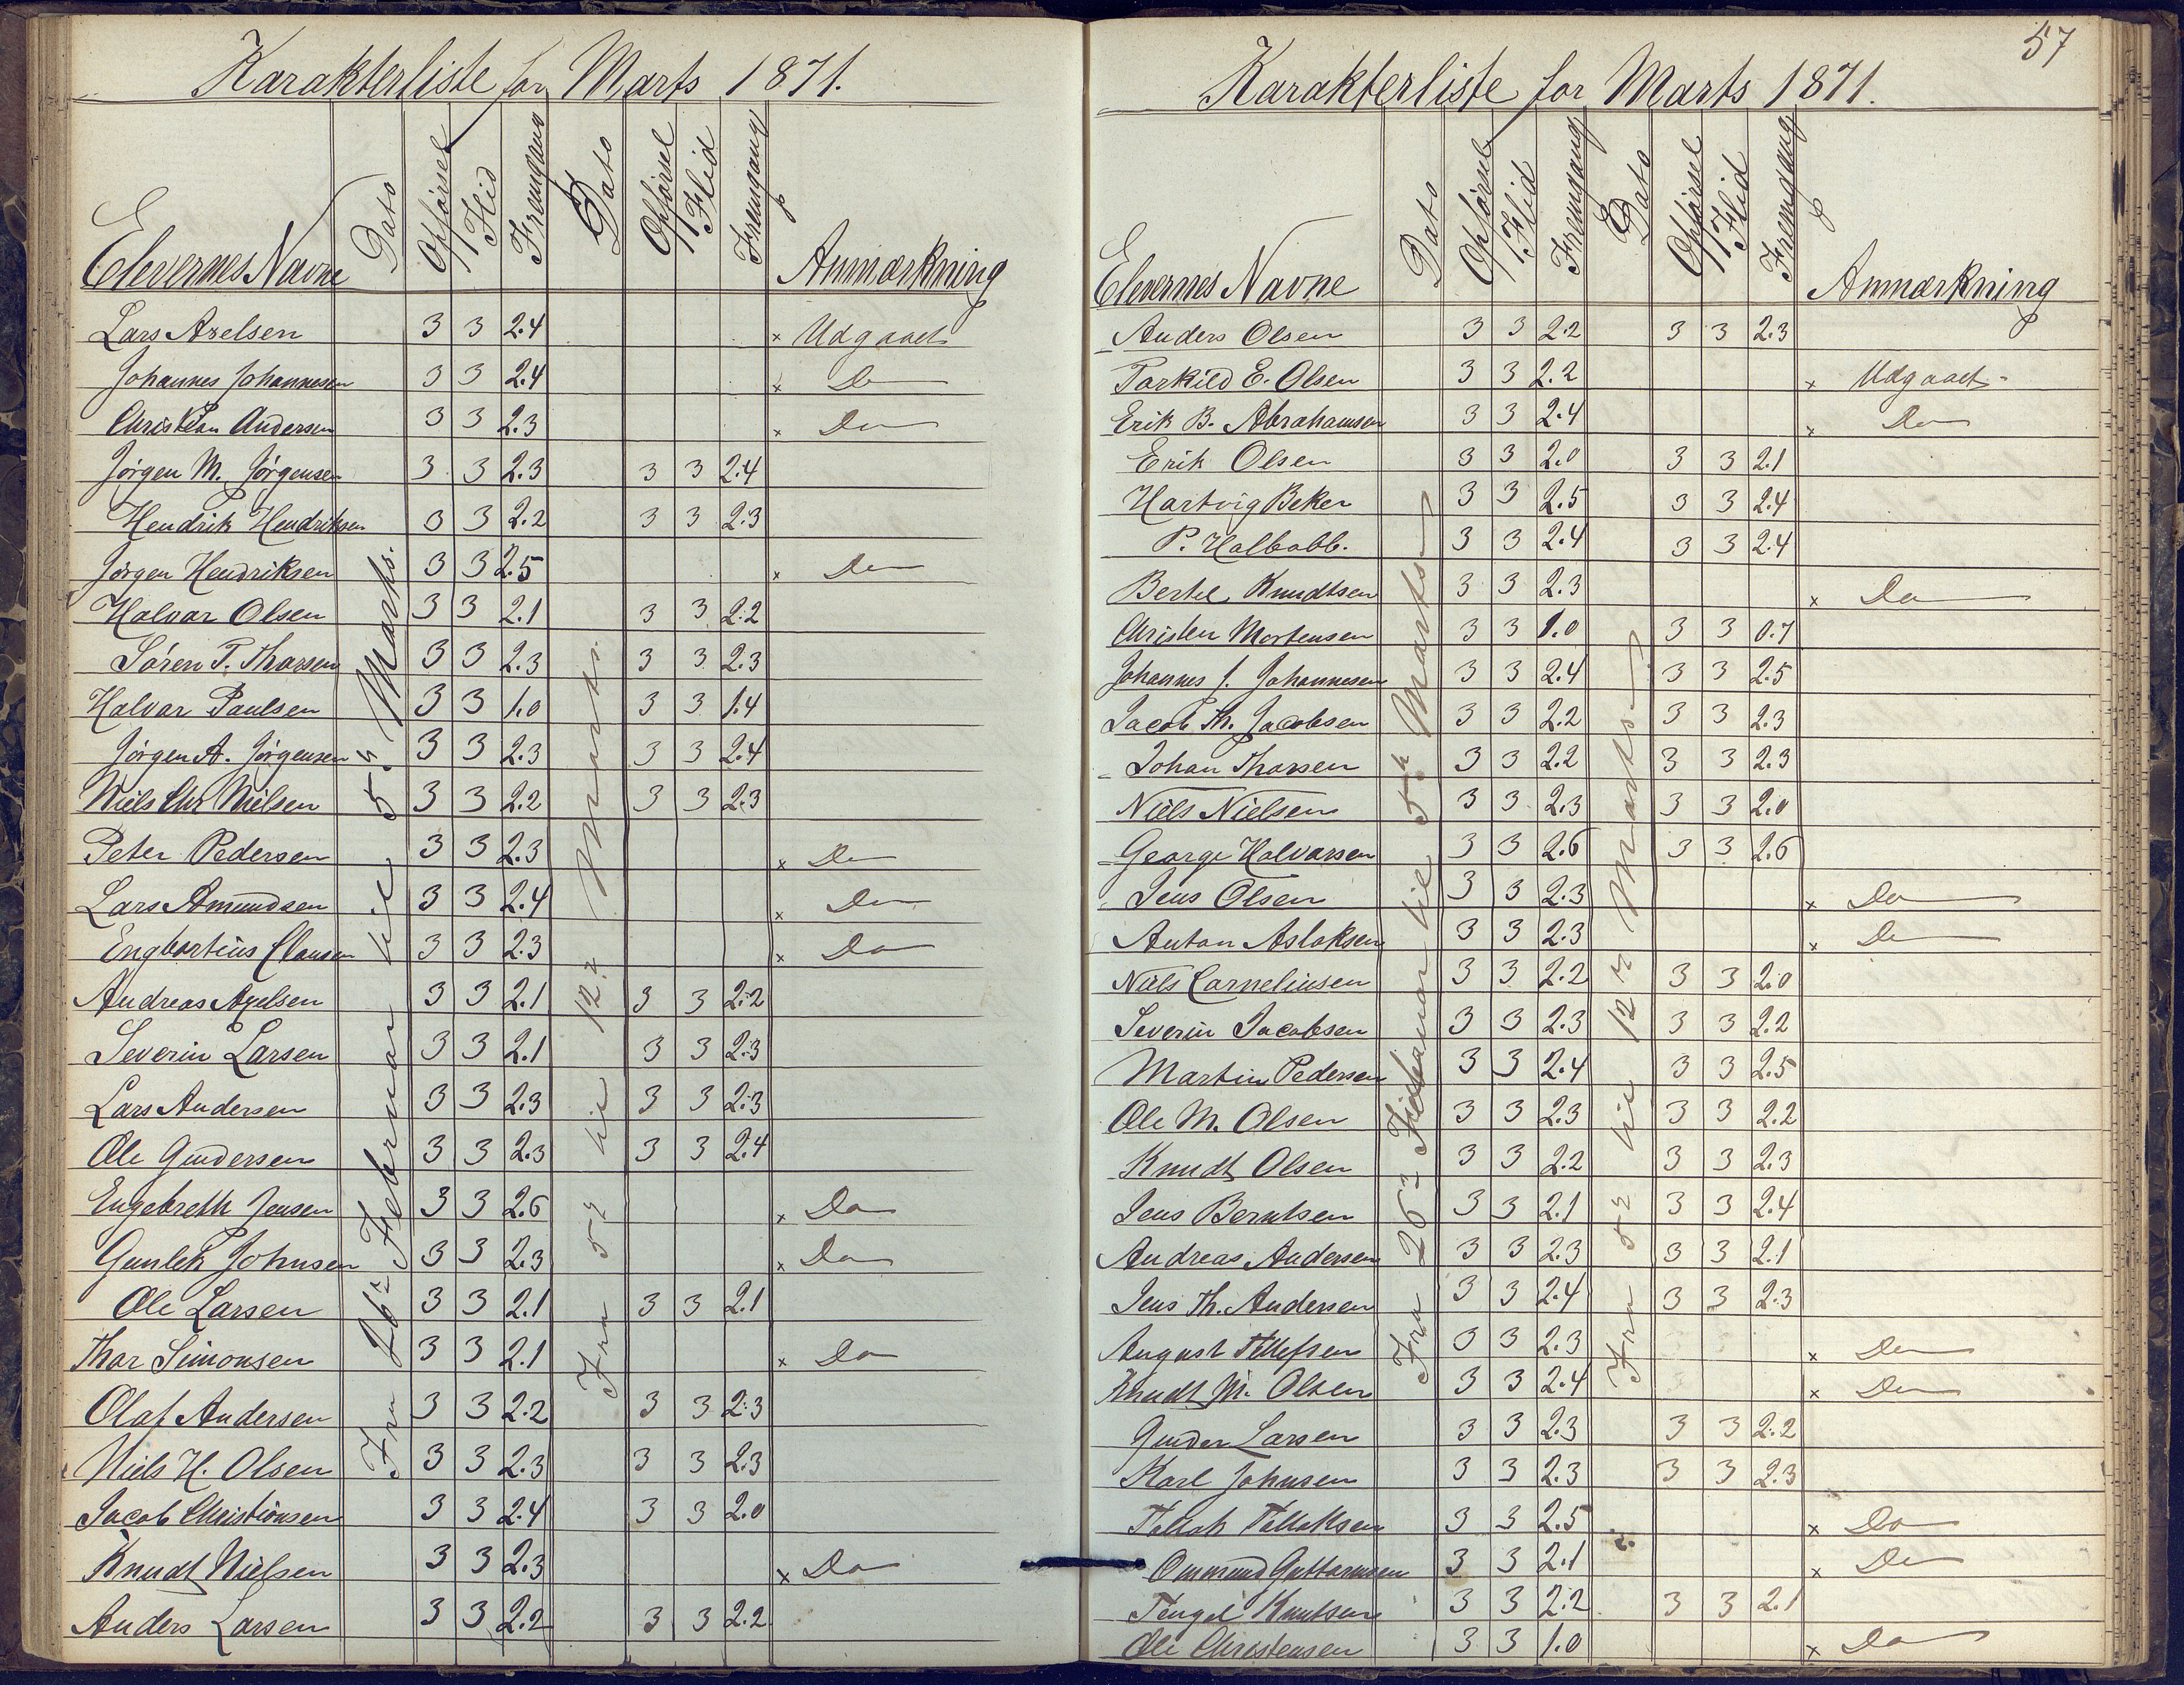 Karakterliste for Marts 1871.
Elevernes Navne Dato Opförsel Flid Fremgang Dato Opförsel Flid Fremgang Anmærkning
Fra 26de Februar til 5te Marts.
Fra 5te til 12te Marts.
Lars Axelsen 3 3 2.4 × Udgaaet
Johannes Johannesen 3 3 2.4 × Do
Christian Andersen 3 3 2.3 × Do
Jörgen M. Jörgensen 3 3 2.3 3 3 2.4
Hendrik Hendriksen 3 3 2.2 3 3 2.3
Jörgen Hendriksen 3 3 2.5 × Do
Halvar Olsen 3 3 2.1 3 3 2.2
Sören T. Tharsen 3 3 2.3 3 3 2.3
Halvar Paulsen 3 3 1.0 3 3 1.4
Jörgen A. Jörgensen 3 3 2.3 3 3 2.4
Niels Chr Nielsen 3 3 2.2 3 3 2.3
Peter Pedersen 3 3 2.3 × Do
Lars Amundsen 3 3 2.4 × Do
Engbartius Clausen 3 3 2.3 × Do
Andreas Axelsen 3 3 2.1 3 3 2.2
Severin Larsen 3 3 2.1 3 3 2.3
Lars Andersen 3 3 2.3 3 3 2.3
Ole Gundersen 3 3 2.3 3 3 2.4
Engebreth Jensen 3 3 2.6 × Do
Gunlek Johnsen 3 3 2.3 × Do
Ole Larsen 3 3 2.1 3 3 2.1
Thor Simonsen 3 3 2.1 × Do
Olaf Andersen 3 3 2.2 3 3 2.3
Niels H. Olsen 3 3 2.3 3 3 2.3
Jacob Christiansen 3 3 2.4 3 3 2.0
Knudt Nielsen 3 3 2.3 × Do
Anders Larsen 3 3 2.2 3 3 2.2
57
Karakterliste for Marts 1871.
Elevernes Navne Dato Opförsel Flid Fremgang Dato Opförsel Flid Fremgang Anmærkning
Fra 26de Februar til 5te Marts
Fra 5te til 12te Marts
Anders Olsen 3 3 2.2 3 3 2.3
Tarkild E. Olsen 3 3 2.2 × Udgaaet
Erik B. Abrahamsen 3 3 2.4 × Do
Erik Olsen 3 3 2.0 3 3 2.1
Hartvig Beker 3 3 2.5 3 3 2.4
P. Halbobb. 3 3 2.4 3 3 2.4
Bertel Knudtsen 3 3 2.3 × Do
Christen Mortensen 3 3 1.0 3 3 0.7
Johannes J. Johannesen 3 3 2.4 3 3 2.5
Jacob Th. Jacobsen 3 3 2.2 3 3 2.3
Johan Tharsen 3 3 2.2 3 3 2.3
Niels Nielsen 3 3 2.3 3 3 2.0
George Halvarsen 3 3 2.6 3 3 2.6
Jens Olsen 3 3 2.3 × Do
Anton Aslaksen 3 3 2.3 × Do
Niels Corneliusen 3 3 2.2 3 3 2.0
Severin Jacobsen 3 3 2.3 3 3 2.2
Martin Pedersen 3 3 2.4 3 3 2.5
Ole M. Olsen 3 3 2.3 3 3 2.2
Knudt Olsen 3 3 2.2 3 3 2.3
Jens Berntsen 3 3 2.1 3 3 2.4
Andreas Andersen 3 3 2.3 3 3 2.1
Jens Th. Andersen 3 3 2.4 3 3 2.3
August Tellefsen 3 3 2.3 × Do
Knudt M. Olsen 3 3 2.4 × Do
Gunder Larsen 3 3 2.3 3 3 2.2
Karl Johnsen 3 3 2.3 3 3 2.3
Tallak Tallaksen 3 3 2.5 × Do
Ommund Guttormsen 3 3 2.1 × Do
Tengel Knutsen 3 3 2.2 3 3 2.1
Ole Christensen 3 3 1.0 × Do